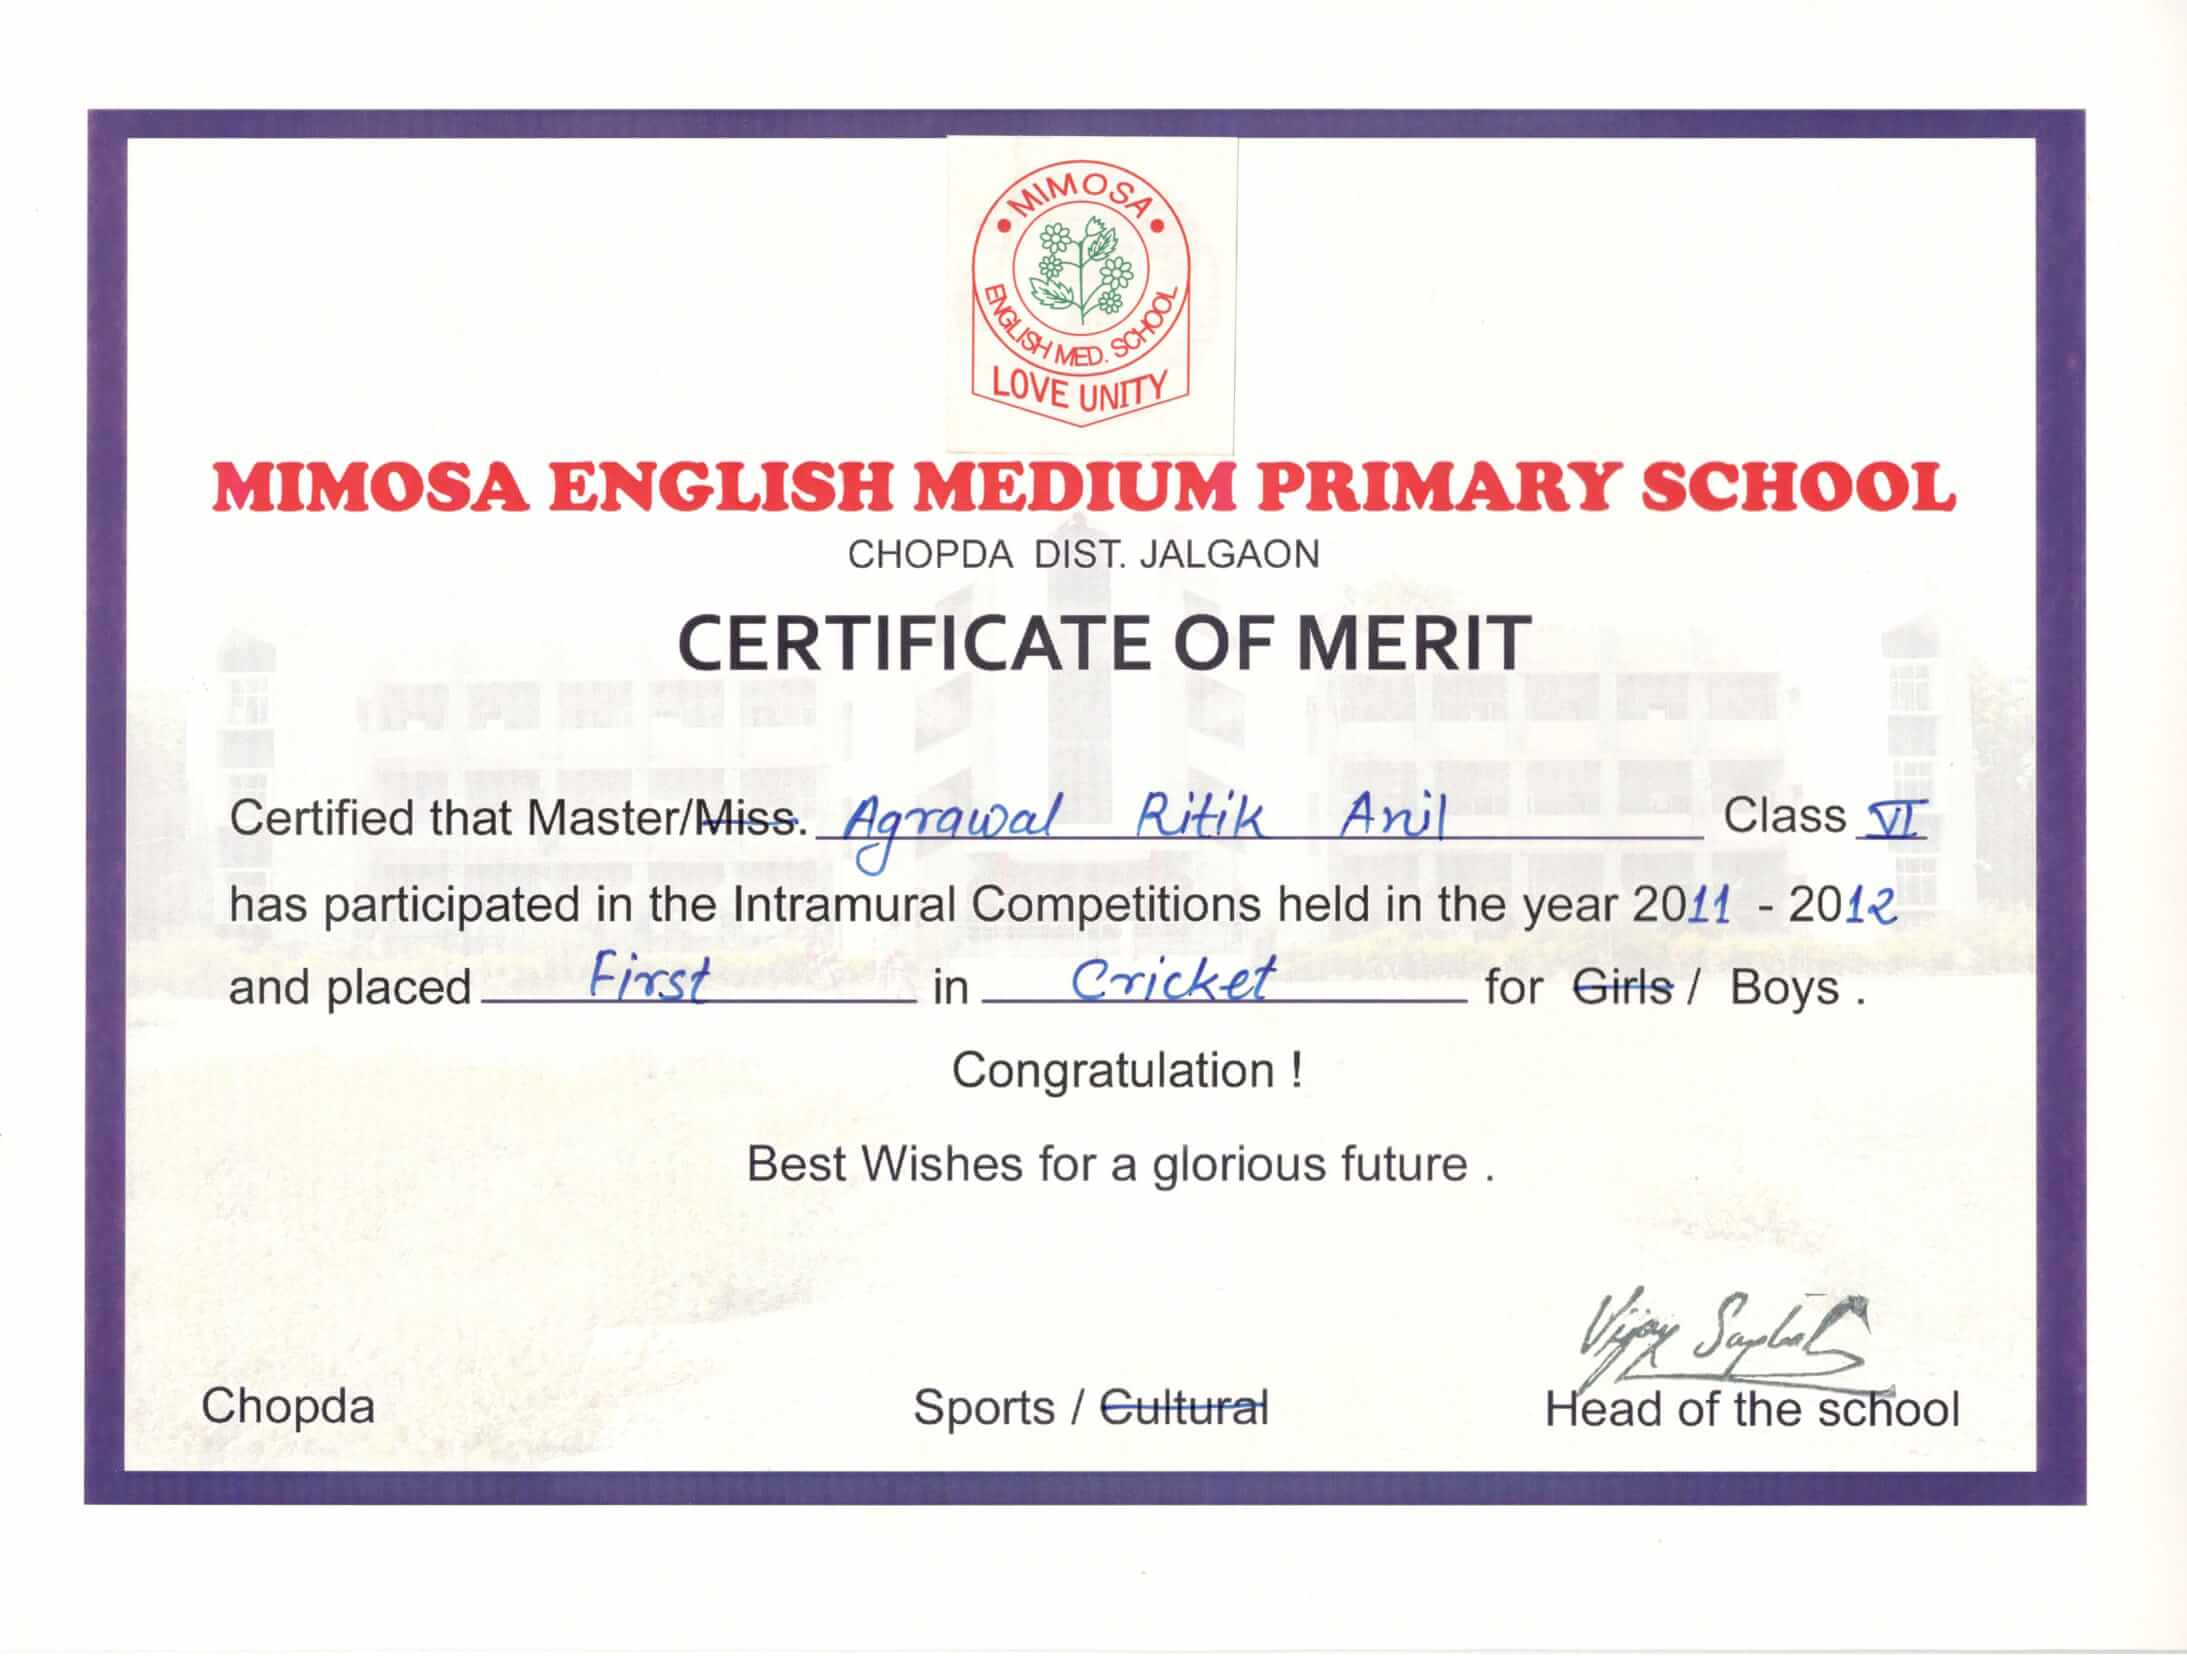 MIMOSA
ENGLISH MED. SCHOOL
LOVE UNITY
MIMOSA ENGLISH MEDIUM PRIMARY SCHOOL
CHOPDA DIST. JALGAON
CERTIFICATE OF MERIT
Certified that Master/Miss. Agrawal Ritik Anil Class VI
has participated in the Intramural Competitions held in the year 2011 - 2012
and placed First in Cricket for Girls / Boys .
Congratulation !
Best Wishes for a glorious future .
Vijay
Chopda Sports / Cultural Head of the school